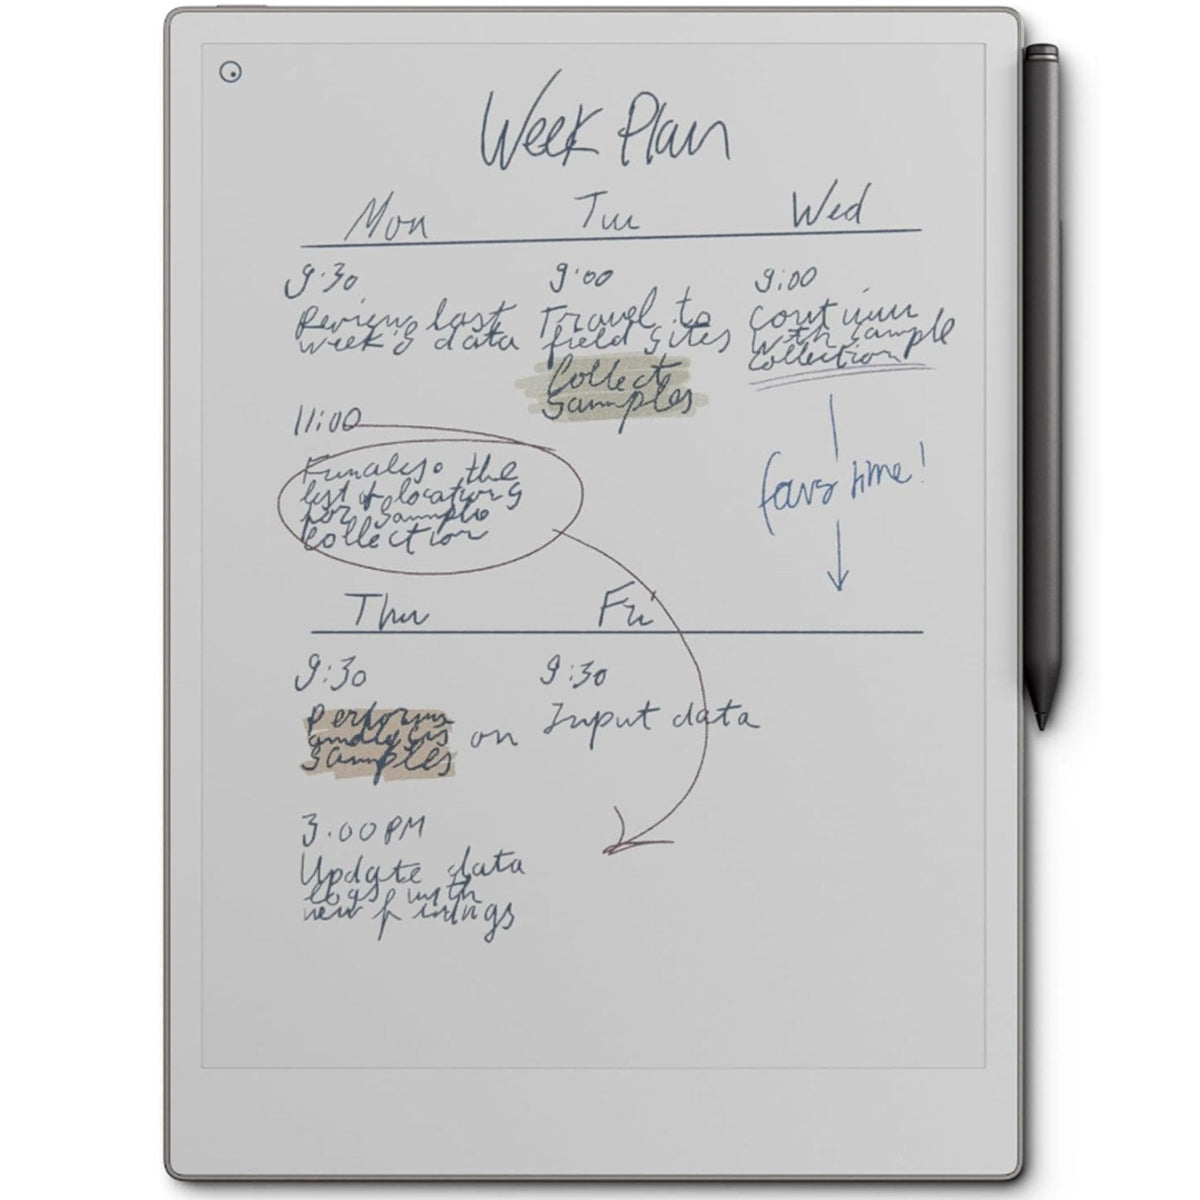 Week Plan
Mon
Tue
Wed
9:30
Review last
week's data
9:00
Travel to
field sites
Collect
samples
9:00
continue
with sample
collection
11:00
the
list of locations
for sample
collection
time!
Thu
Fri
9:30
Perform
analysis on
samples
9:30
Input data
3.00PM
Update data
logs with
new findings